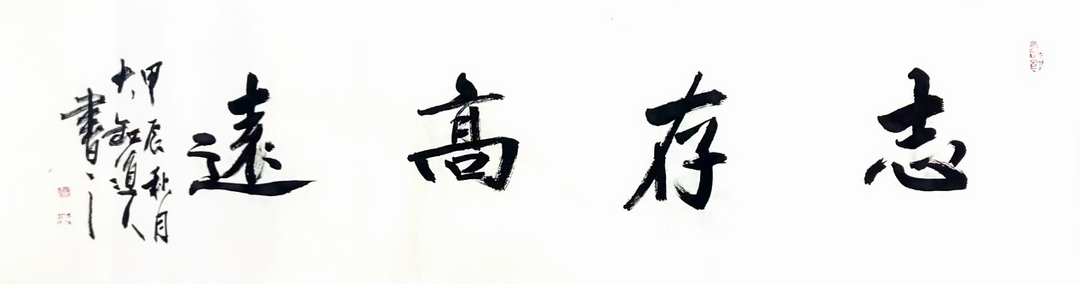 志存高遠
甲辰秋月
大缸道人
書